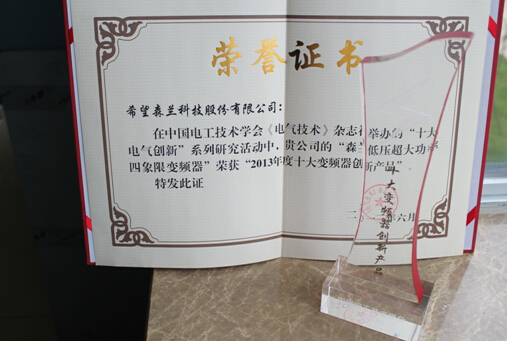 荣誉证书
希望森兰科技股份有限公司：
在中国电工技术学会《电气技术》杂志社举办的“十大
电气创新”系列研究活动中，贵公司的“森兰低压超大功率
四象限变频器”荣获“2013年度十大变频器创新产品”
特发此证
年六月
十大变频器创新产品